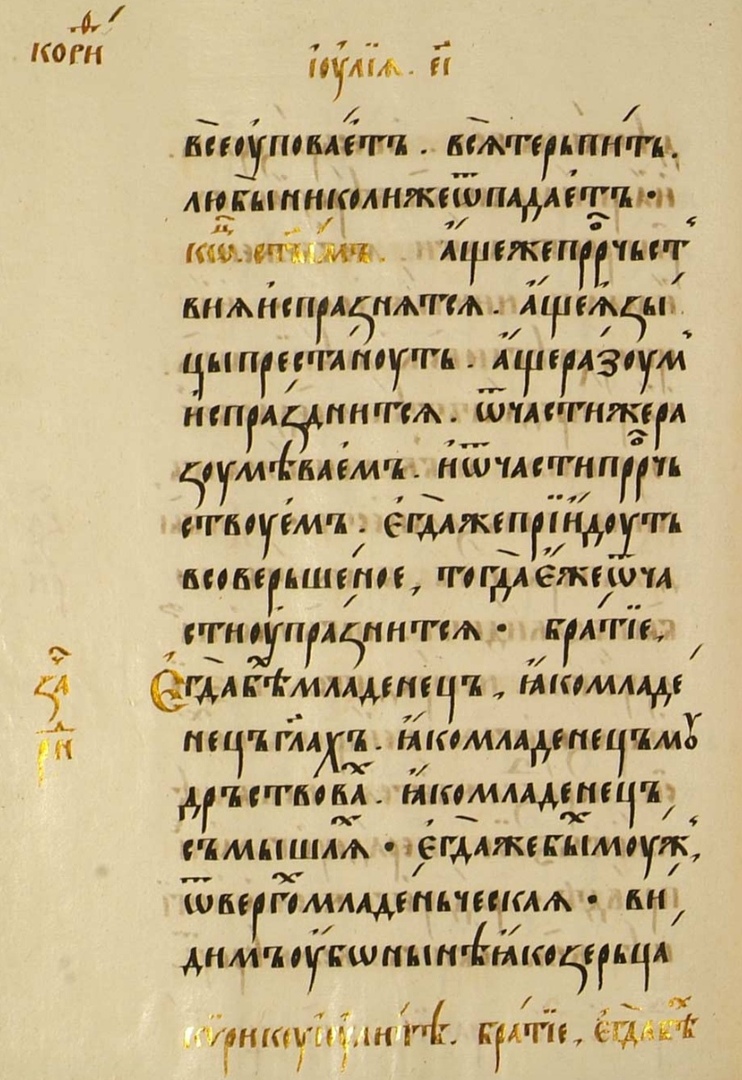 а҃ КОРИ҄
і҆оу́лїѧ. е҃і
всѐеоу҆пова́етъ . всѧ̀терьпи́ть.
любы̀николижеѿпада́етъ ·
ст҃ы́мъ. а҆́щежепррⷪ҇чьст
виꙗи҆спразнѧтсѧ . а҆́щеꙗ҆зы
цыпреста́ноуть . а҆́щера́зоум
и҆спра́зднитсѧ . ѿчастижера
зоумѣвае́мъ . и҆ѿчастипррⷪ҇чь
ствоуе́мъ . є҆гда̀жепрїи҆́доуть
всоверьше́ное , тогда̀є҆́жеѿча
стиоу҆пра́знитсѧ · бра́тїе,
Є҆гда̀бѣⷯмладенець , ꙗ҆́комладе
нецъгл҃ахъ . ꙗ҆́комладенецъмꙋ
дръствоваⷯ . ꙗ҆́комладенецъ
съмышлѧⷯ · є҆гда̀жебыⷯмоуж ,
ѿвергоⷯмладеньческаꙗ · ви
димъоу҆́бѡнынѣꙗ҆́козерьца
за҄
ри
кѵ́рикоуиі҆оули́тѣ . бра́тїе , є҆гда̀бѣⷯ